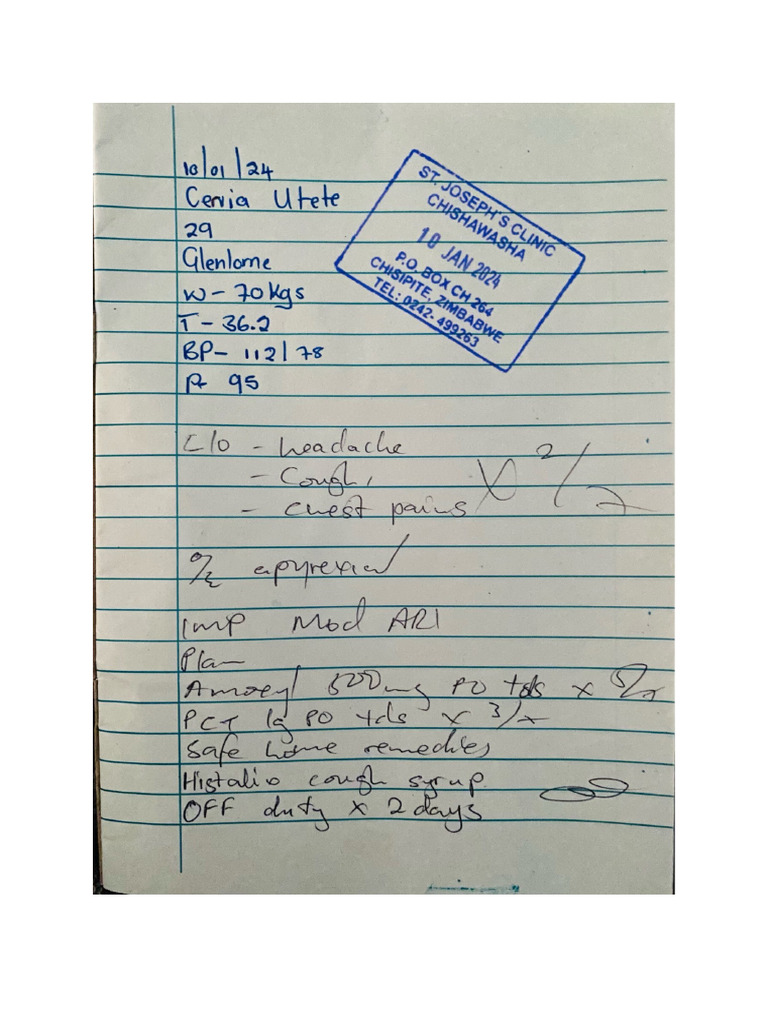 10/01/24
Cervia Utete
29
Glenlorne
W - 70kgs
T - 36.2
BP - 112/78
P 95
ST. JOSEPH'S CLINIC
CHISHAWASHA
10 JAN 2024
P.O. BOX CH 264
CHISIPITE, ZIMBABWE
TEL: 0242- 499263
C/O - headache
- Cough,
- chest pains x 2/7
O/E apyrexial
Imp Mod ARI
Plan
Amoxyl 500mg PO tds x 5/7
PCT 1g PO tds x 3/7
Safe home remedies
Histalix cough syrup
OFF duty x 2 days